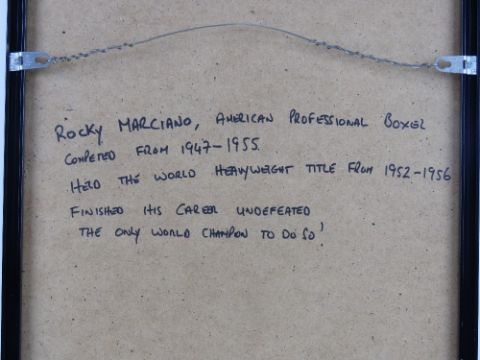 Rocky MARCIANO, AMERICAN PROFESSIONAL BOXER
COMPETED FROM 1947-1955.
HELD THE WORLD HEAVYWEIGHT TITLE FROM 1952-1956
FINISHED HIS CAREER UNDEFEATED
THE ONLY WORLD CHAMPION TO DO SO!